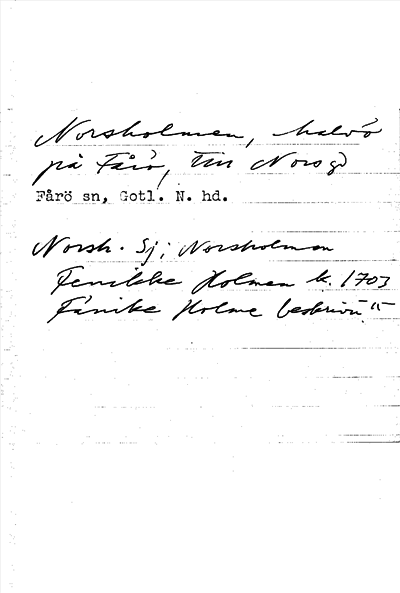 Norsholmen, halvö
på Fårö, till Nors gd
Fårö sn, Gotl. N. hd.
Norsh. Sj; Norsholmen
Fenikke Holmen k. 1703
Fånike Holme beskrivn.